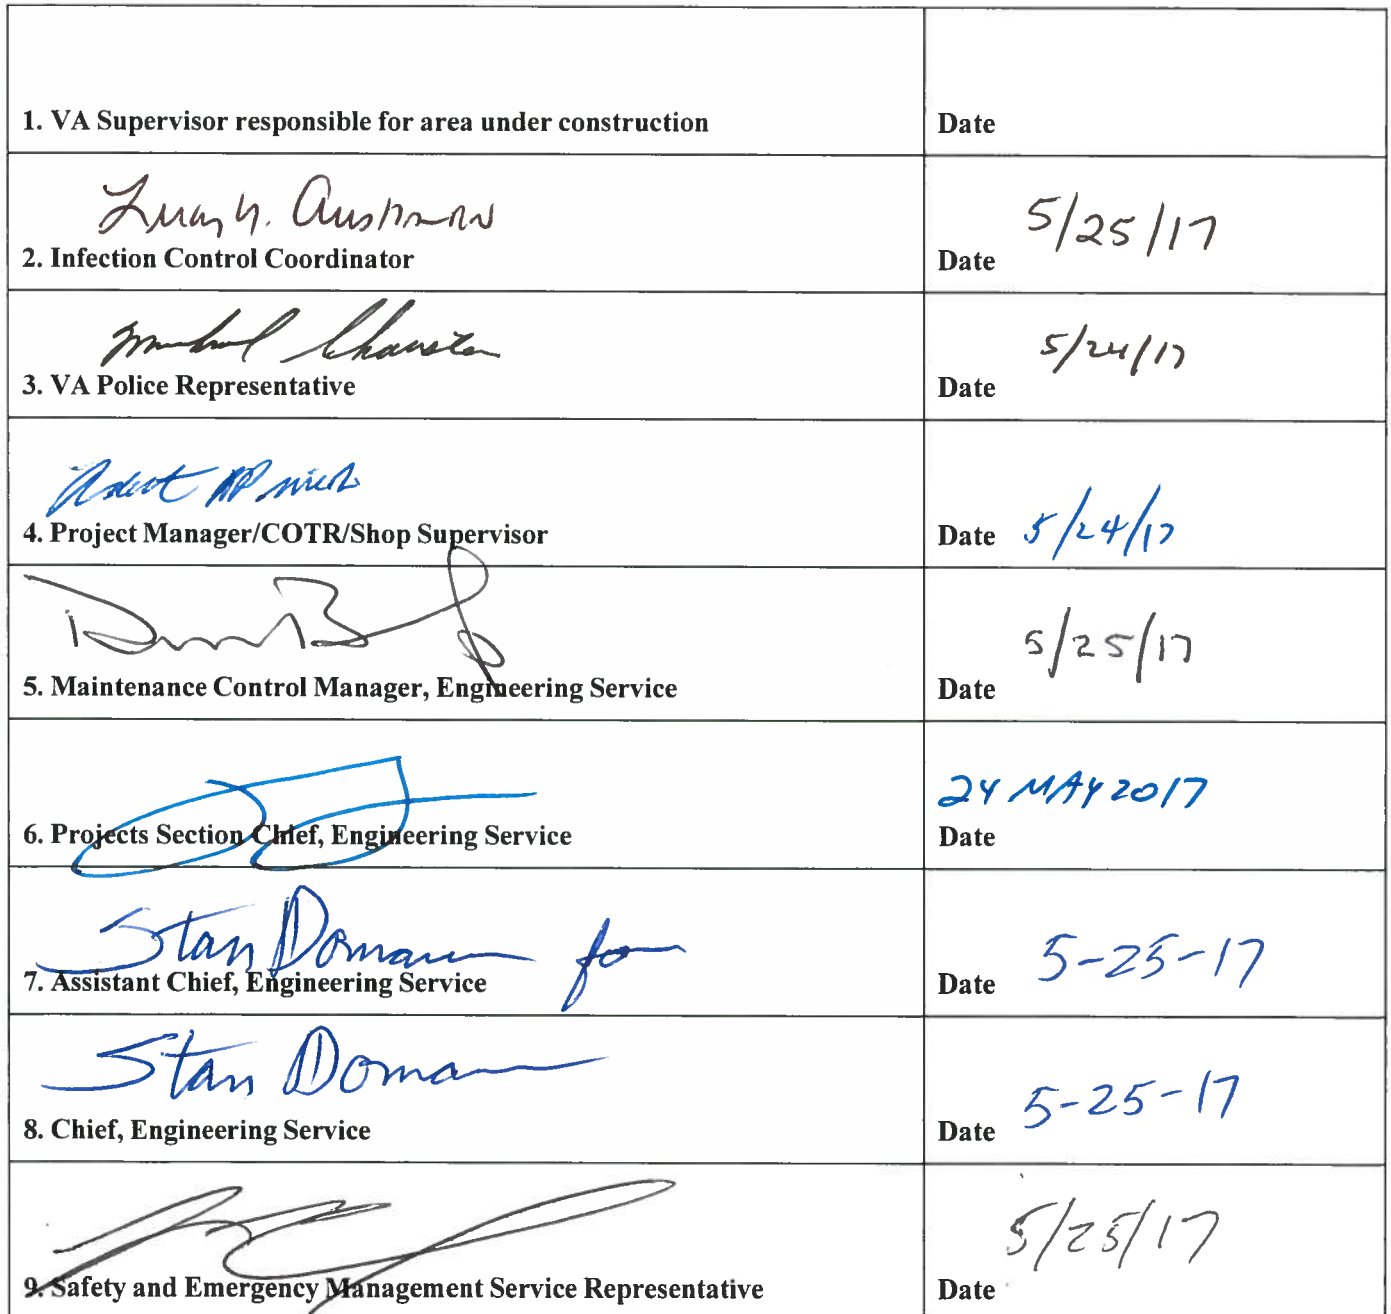 1. VA Supervisor responsible for area under construction
Date
5/25/17
2. Infection Control Coordinator
Date
5/24/17
3. VA Police Representative
Date
4. Project Manager/COTR/Shop Supervisor
Date 5/24/17
5/25/17
5. Maintenance Control Manager, Engineering Service
Date
24 MAY 2017
6. Projects Section Chief, Engineering Service
Date
Stan Doman for
7. Assistant Chief, Engineering Service
Date 5-25-17
Stan Doman
8. Chief, Engineering Service
Date 5-25-17
5/25/17
9. Safety and Emergency Management Service Representative
Date